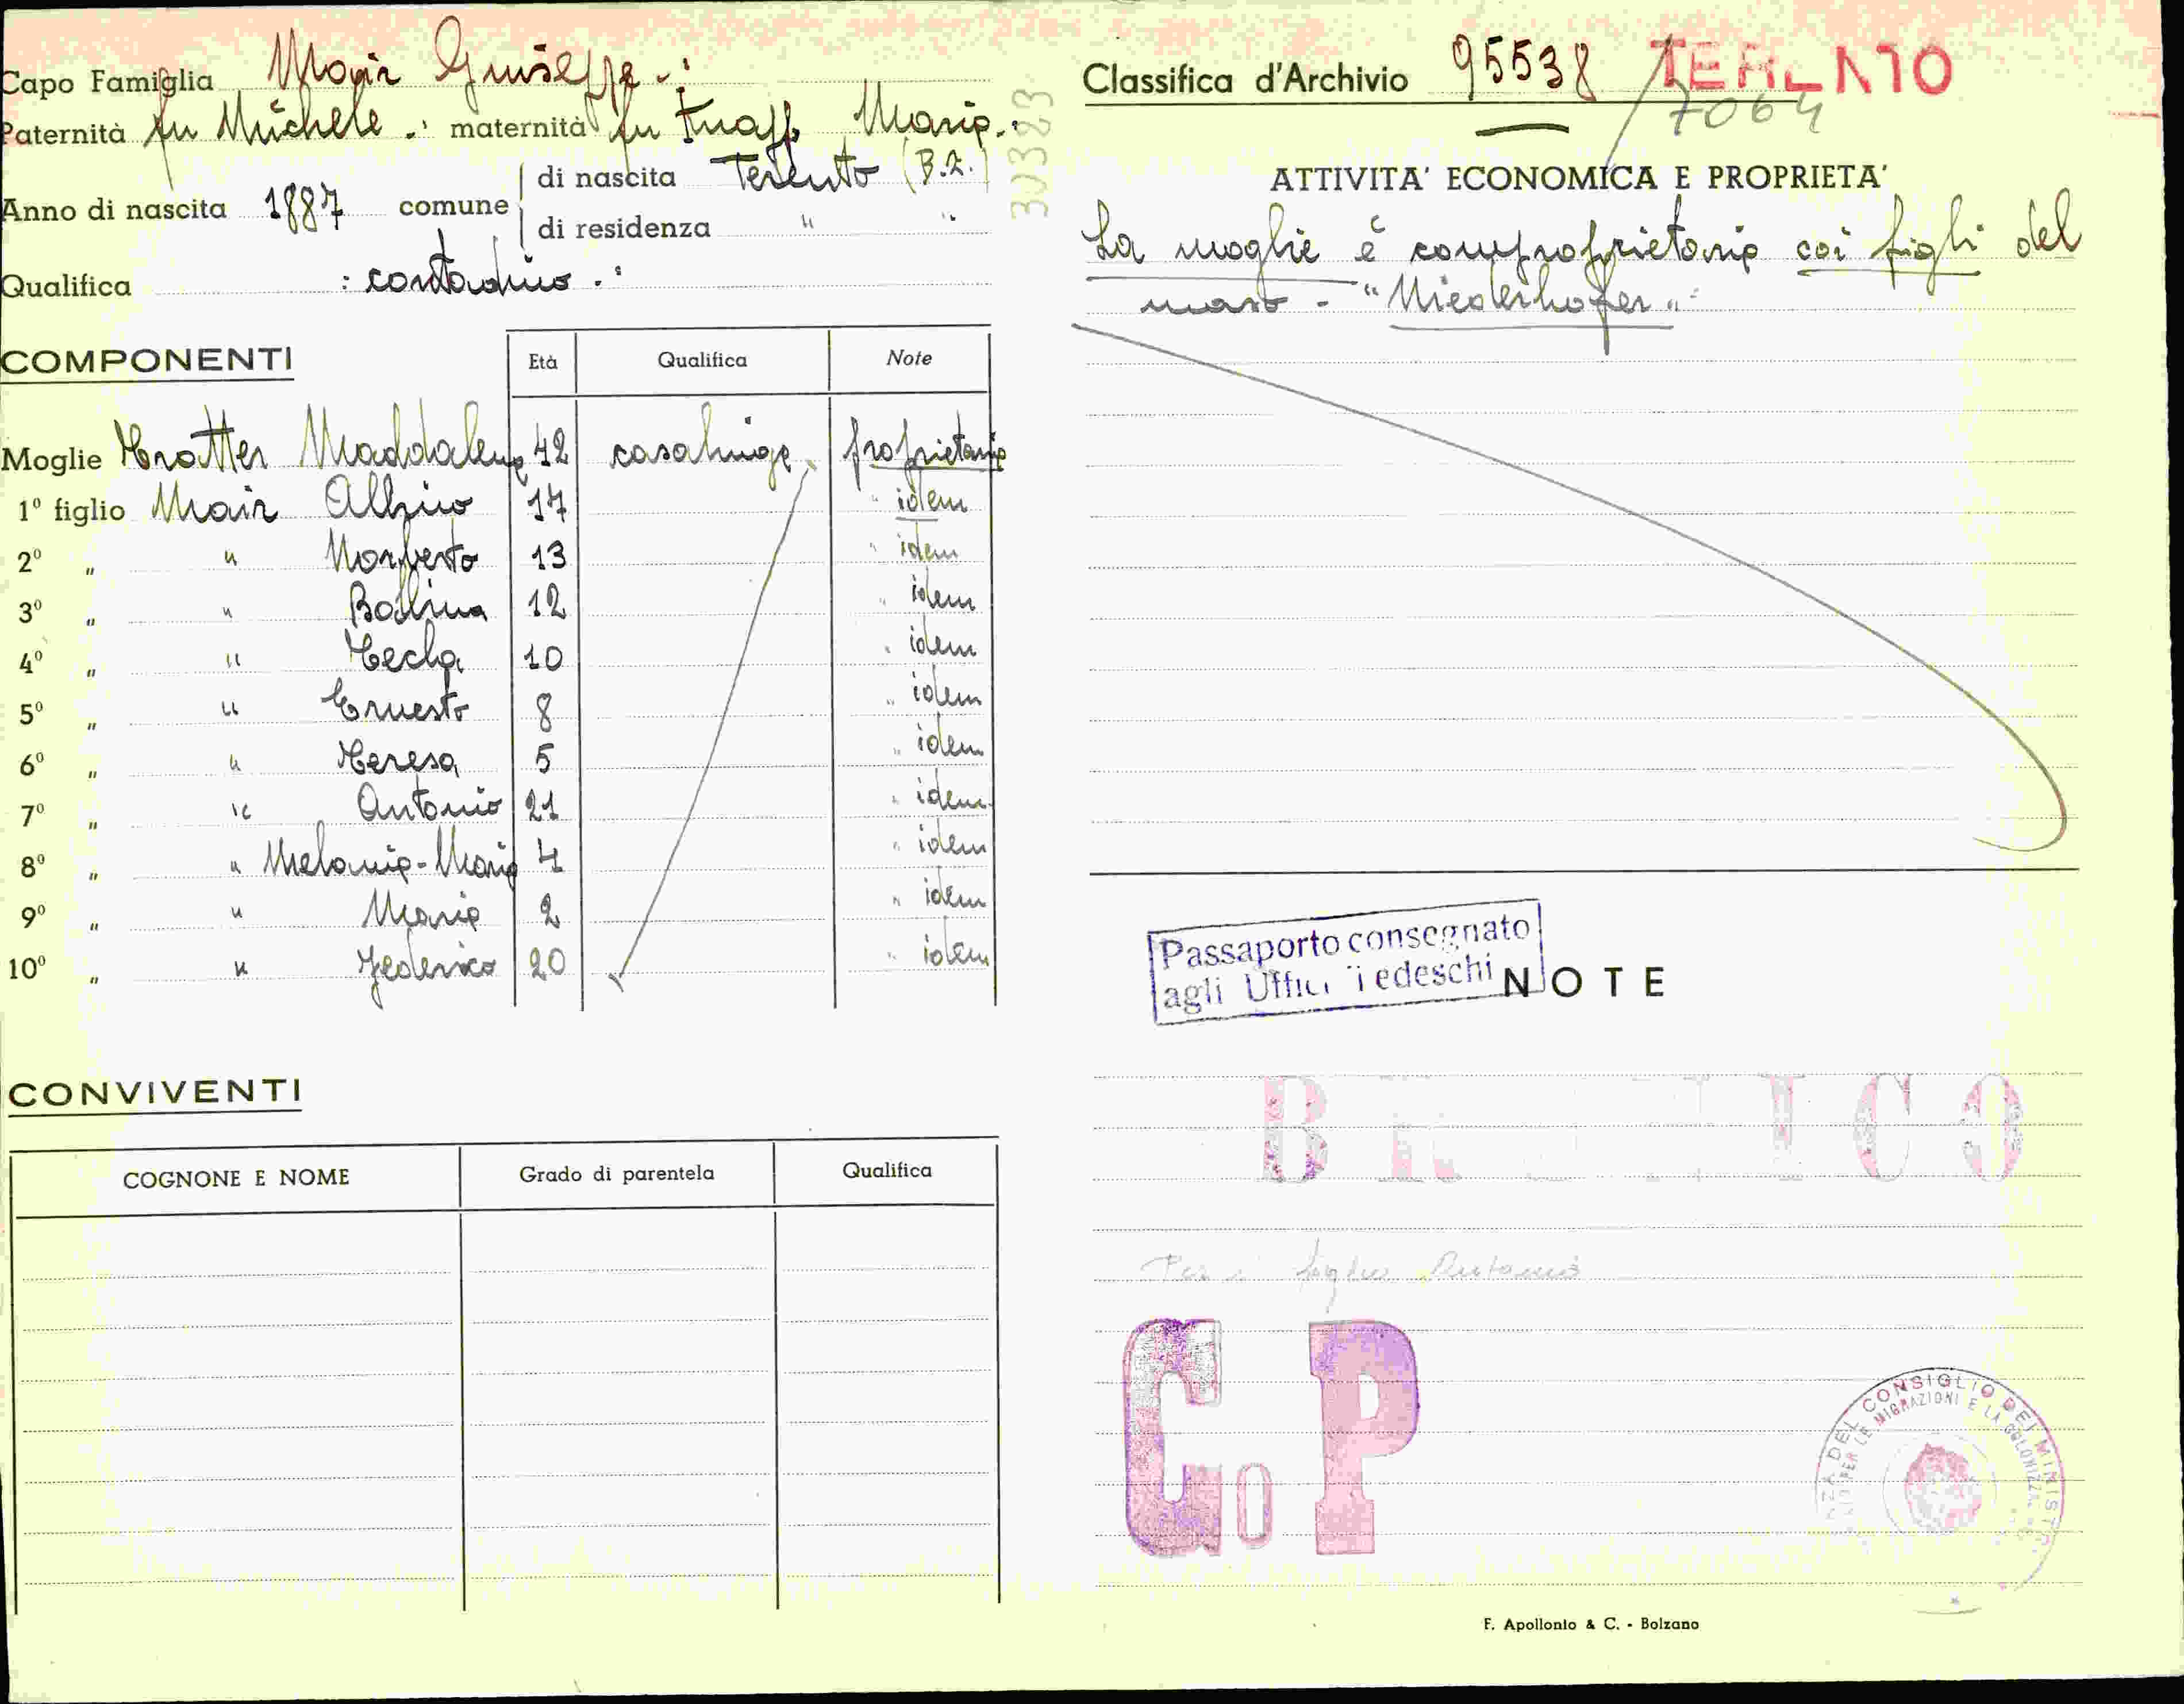 Capo Famiglia Mair Giuseppe .:
Paternità fu Michele .: maternità fu Knapp Maria .:
Anno di nascita 1887 comune
di nascita Terento (B.Z.)
di residenza " "
Qualifica : contadino .:
COMPONENTI Età Qualifica Note
Moglie Tratter Maddalena 42 casalinga proprietaria
1º figlio Mair Albino 17 " idem
2º " " Norberto 13 " idem
3º " " 12 " idem
4º " " Tecla 10 " idem
5º " " Ernesto 8 " idem
6º " " Teresa 5 " idem
7º " " Antonio 21 " idem
8º " " Melania-Maria 4 " idem
9º " " Maria 2 " idem
10º " " Federico 20 " idem
CONVIVENTI
COGNONE E NOME Grado di parentela Qualifica
303323
Classifica d'Archivio 95538 TERENTO
7064
ATTIVITA' ECONOMICA E PROPRIETA'
La moglie è comproprietaria coi figli del
maso - "Niederhofer" :
Passaporto consegnato
agli Uffici Tedeschi
NOTE
Per figlio Antonio
G. P
DEL CONSIGLIO DEI MINISTRI
PER LE MIGRAZIONI E LA COLONIZZ
F. Apollonio & C. - Bolzano